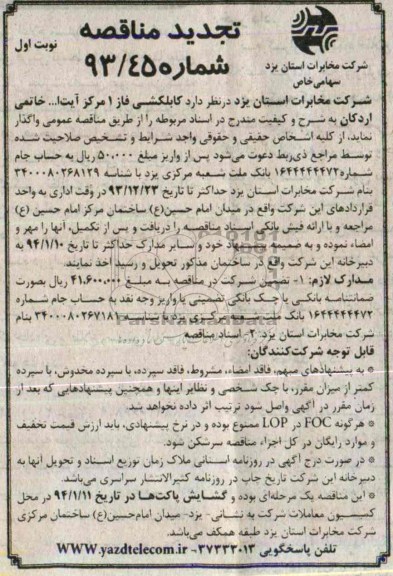 تجدید مناقصه
نوبت اول
شماره ۹۳/۴۵
شرکت مخابرات استان یزد
سهامی خاص
شرکت مخابرات استان یزد درنظر دارد کابلکشی فاز ۱ مرکز آیت‌ا... خاتمی
اردکان به شرح و کیفیت مندرج در اسناد مربوطه را از طریق مناقصه عمومی واگذار
نماید، از کلیه اشخاص حقیقی و حقوقی واجد شرایط و تشخیص صلاحیت شده
توسط مراجع ذی‌ربط دعوت می‌شود پس از واریز مبلغ ۵۰.۰۰۰ ریال به حساب جام
شماره ۱۶۴۴۴۴۴۴۷۲ بانک ملت شعبه مرکزی یزد با شناسه ۳۴۰۰۰۸۰۲۶۸۱۲۹
بنام شرکت مخابرات استان یزد حداکثر تا تاریخ ۹۳/۱۲/۲۳ در وقت اداری به واحد
قراردادهای این شرکت واقع در میدان امام حسین(ع) ساختمان مرکز امام حسین (ع)
مراجعه و با ارائه فیش بانکی اسناد مناقصه را دریافت و پس از تکمیل، آنها را مهر و
امضاء نموده و به ضمیمه پیشنهاد خود و سایر مدارک حداکثر تا تاریخ ۹۴/۱/۱۰ به
دبیرخانه این شرکت واقع در ساختمان مذکور تحویل و رسید اخذ نمایند.
مدارک لازم: ۱- تضمین شرکت در مناقصه به مبلغ ۴۱.۶۰۰.۰۰۰ ریال بصورت
ضمانتنامه بانکی یا چک بانکی تضمینی یا واریز وجه نقد به حساب جام شماره
۱۶۴۴۴۴۴۴۷۲ بانک ملت شعبه مرکزی یزد با شناسه ۳۴۰۰۰۸۰۲۶۷۱۸۱ بنام
شرکت مخابرات استان یزد. ۲- اسناد مناقصه
قابل توجه شرکت‌کنندگان:
* به پیشنهادهای مبهم، فاقد امضاء، مشروط، فاقد سپرده، یا سپرده مخدوش، یا سپرده
کمتر از میزان مقرر، یا چک شخصی و نظایر اینها و همچنین پیشنهادهایی که بعد از
زمان مقرر در آگهی واصل شود ترتیب اثر داده نخواهد شد.
* هرگونه FOC در LOP ممنوع بوده و در نرخ پیشنهادی، باید ارزش قیمت تخفیف
و موارد رایگان در کل اجزاء مناقصه سرشکن شود.
* در صورت درج آگهی در روزنامه استانی ملاک زمان توزیع اسناد و تحویل آنها به
دبیرخانه این شرکت تاریخ چاپ در روزنامه کثیرالانتشار سراسری می‌باشد.
* این مناقصه یک مرحله‌ای بوده و گشایش پاکت‌ها در تاریخ ۹۴/۱/۱۱ در محل
کمیسیون معاملات شرکت به نشانی- یزد- میدان امام حسین(ع) ساختمان مرکزی
شرکت مخابرات استان یزد طبقه همکف می‌باشد.
تلفن پاسخگویی ۳۷۲۳۲۰۱۳- WWW.yazdtelecom.ir